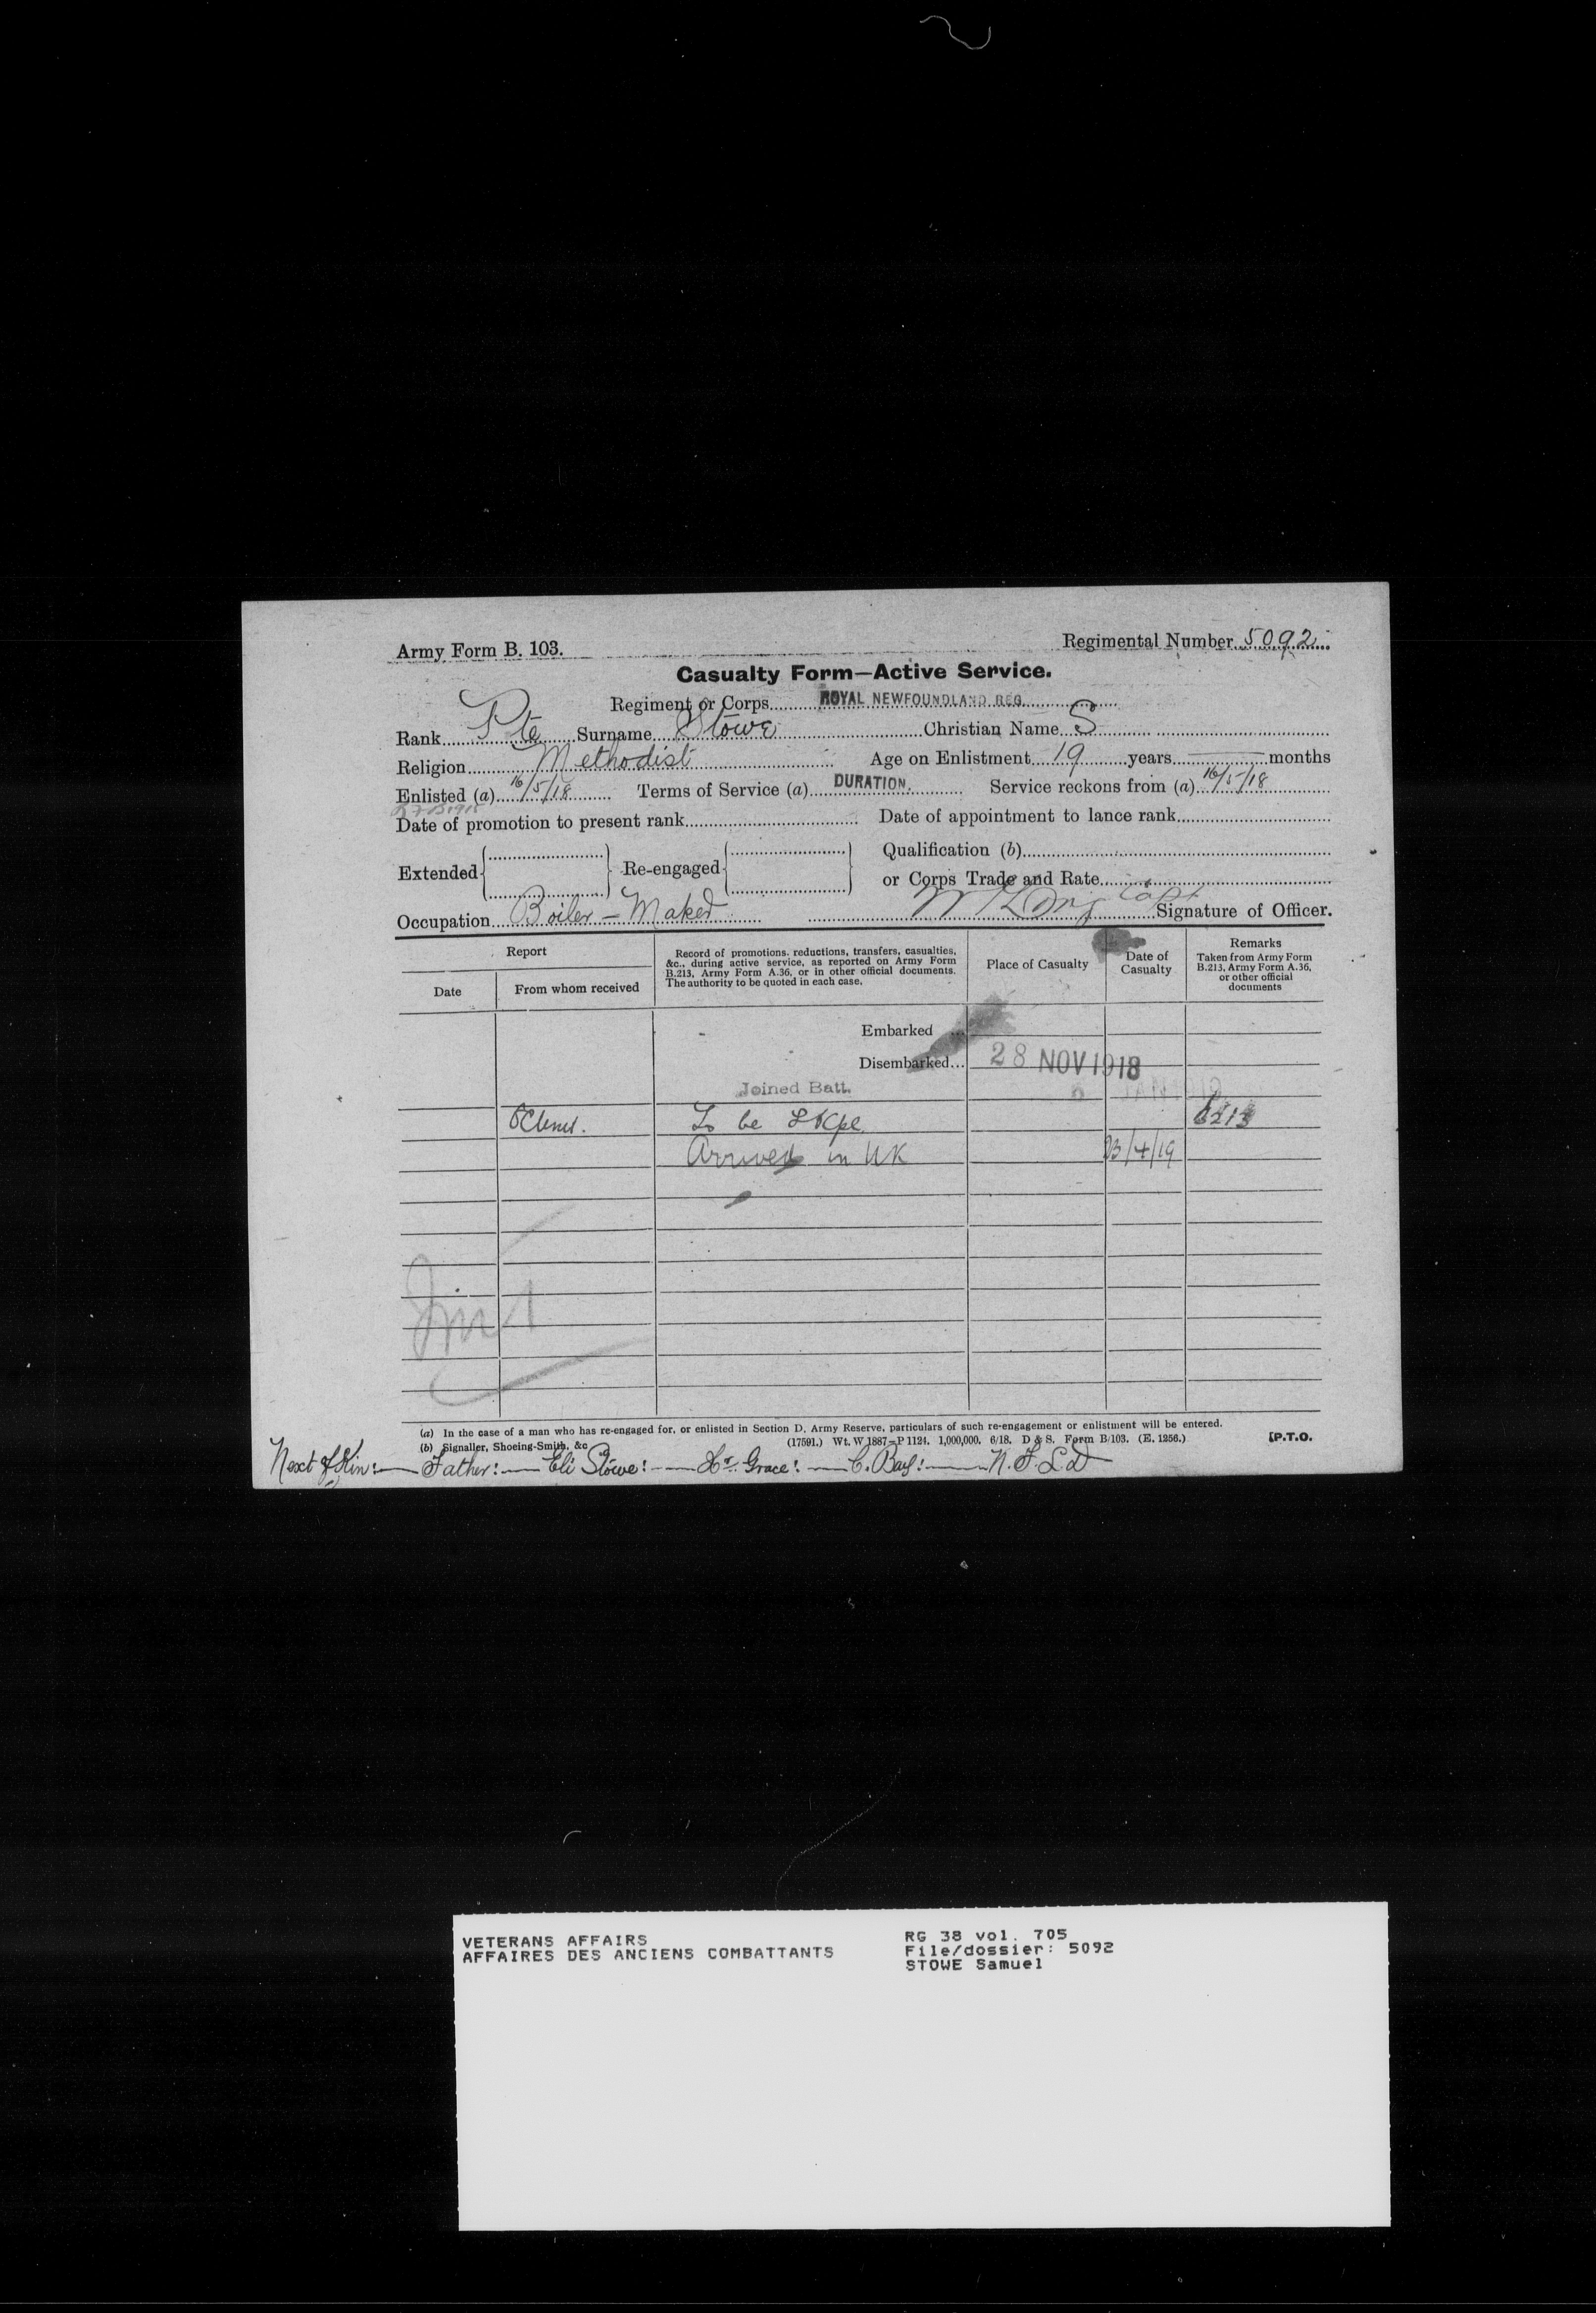 Army Form B. 103.
Regimental Number 5092
Casualty Form—Active Service.
Regiment or Corps ROYAL NEWFOUNDLAND REG.
Rank Pte Surname Stowe Christian Name S
Religion Methodist Age on Enlistment 19 years — months
Enlisted (a) 16/5/18 Terms of Service (a) DURATION. Service reckons from (a) 16/5/18
Date of promotion to present rank Date of appointment to lance rank
Extended Re-engaged Qualification (b)
or Corps Trade and Rate
Occupation Boiler - Maker Capt Signature of Officer.
Report
Date
From whom received
Record of promotions, reductions, transfers, casualties,
&c., during active service, as reported on Army Form
B.213, Army Form A.36, or in other official documents.
The authority to be quoted in each case.
Place of Casualty
Date of
Casualty
Remarks
Taken from Army Form
B.213, Army Form A.36,
or other official
documents
Embarked ...
Disembarked... 28 NOV 1918
Joined Batt.
To be L/Cpl B213
Arrived in UK 23/4/19
(a) In the case of a man who has re-engaged for, or enlisted in Section D, Army Reserve, particulars of such re-engagement or enlistment will be entered.
(b) Signaller, Shoeing-Smith, &c. (17591.) Wt. W 1887—P 1124. 1,000,000. 6/18. D & S. Form B/103. (E. 1256.) [P.T.O.
Next of Kin:— Father:— Eli Stowe:— Hr. Grace:— C. Bay:— N.F.L.D
VETERANS AFFAIRS
AFFAIRES DES ANCIENS COMBATTANTS
RG 38 vol. 705
File/dossier: 5092
STOWE Samuel